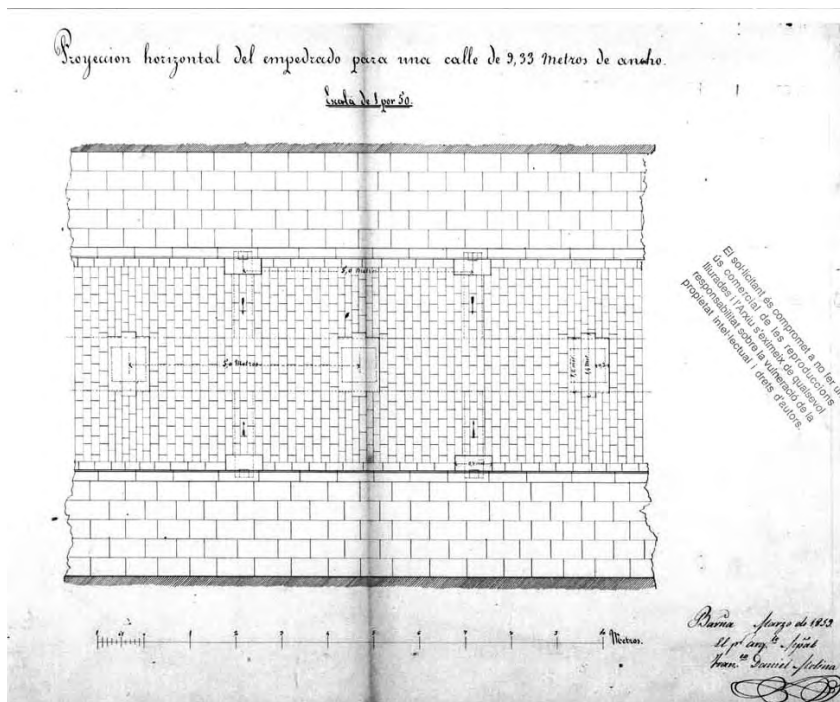 Proyeccion horizontal del empedrado para una calle de 9,33 Metros de ancho.
Escala de 1 por 50.
5,0 Metros
5,0 Metros
El sol·licitant és compromet a no fer un
ús comercial de les reproduccions
lliurades i l'Arxiu s'eximeix de qualsevol
responsabilitat sobre la vulneració de la
propietat intel·lectual i drets d'autors.
Metros.
Barña Marzo de 1853
El pr arq.to
Fran.co Daniel Molina